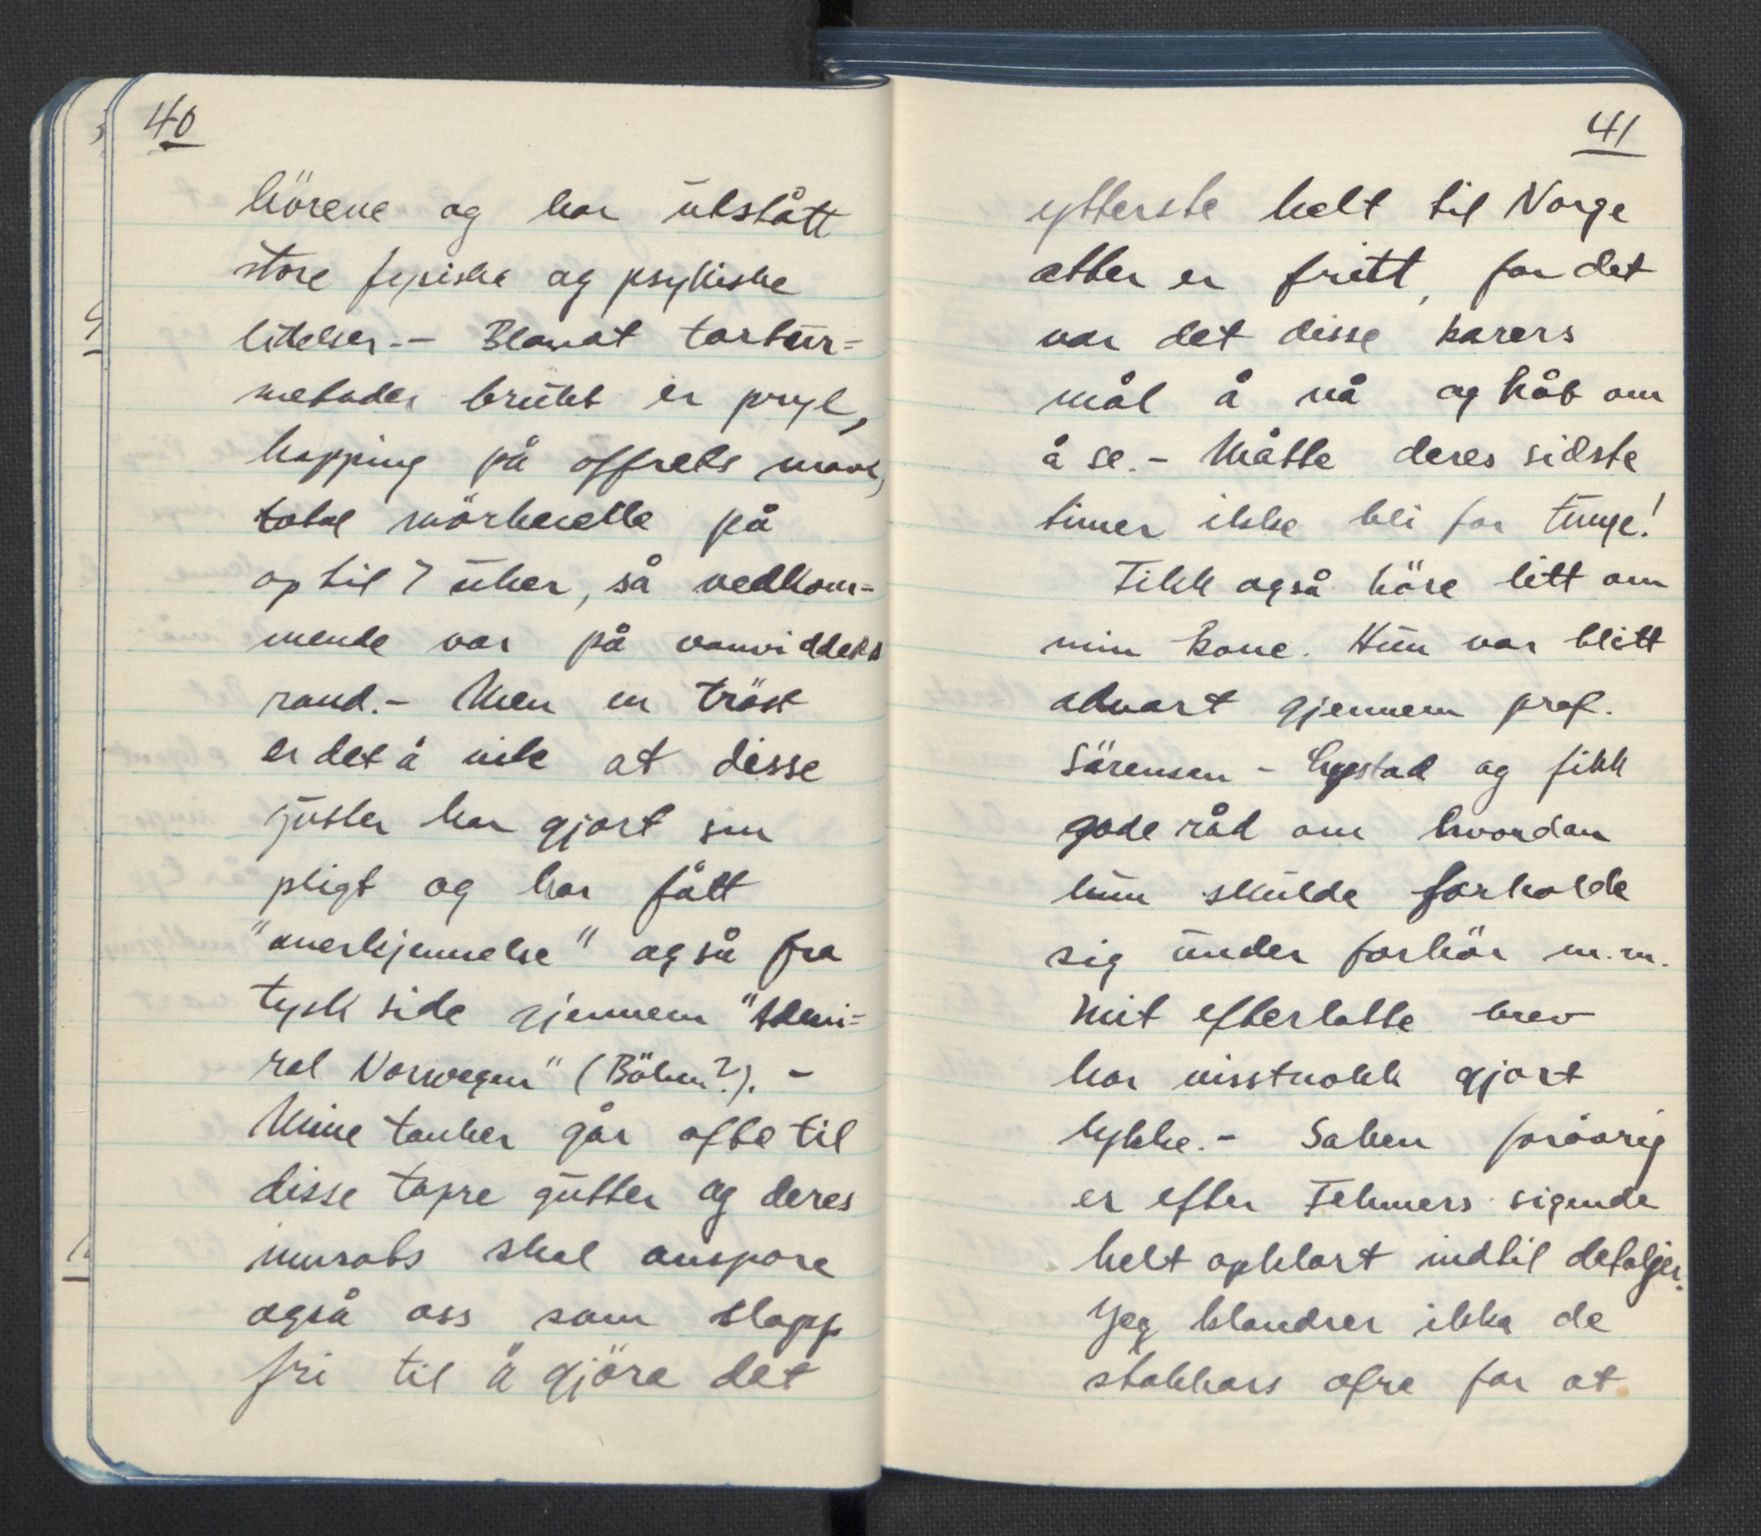 40
hörene og har utstått
store fysiske og psykiske
lidelser. - Blandt tortur-
metoder brukt er pryl,
hopping på offrets mave,
total mörkecelle på
op til 7 uker, så vedkom-
mende var på vanviddets
rand. - Men en tröst
er det å vite at disse
gutter har gjort sin
pligt og har fått
"anerkjennelse" også fra
tysk side gjennem "Admi-
ral Norwegen" (Böhm?). -
Mine tanker går ofte til
disse tapre gutter og deres
innsats skal anspore
også oss som slapp
fri til å gjöre det
41
ytterste helt til Norge
atter er fritt, for det
var det disse karers
mål å nå og håb om
å se. - Måtte deres sidste
timer ikke bli for tunge!
Fikk også höre litt om
min kone. Hun var blitt
advart gjennem prof.
Sörensen - Lystad og fikk
gode råd om hvordan
hun skulde forholde
sig under forhör m.m.
Mit efterlatte brev
har visstnokk gjort
lykke. - Saken forövrig
er efter Fehmers sigende
helt opklart indtil detaljer.
Jeg klandrer ikke de
stakkars ofre for at